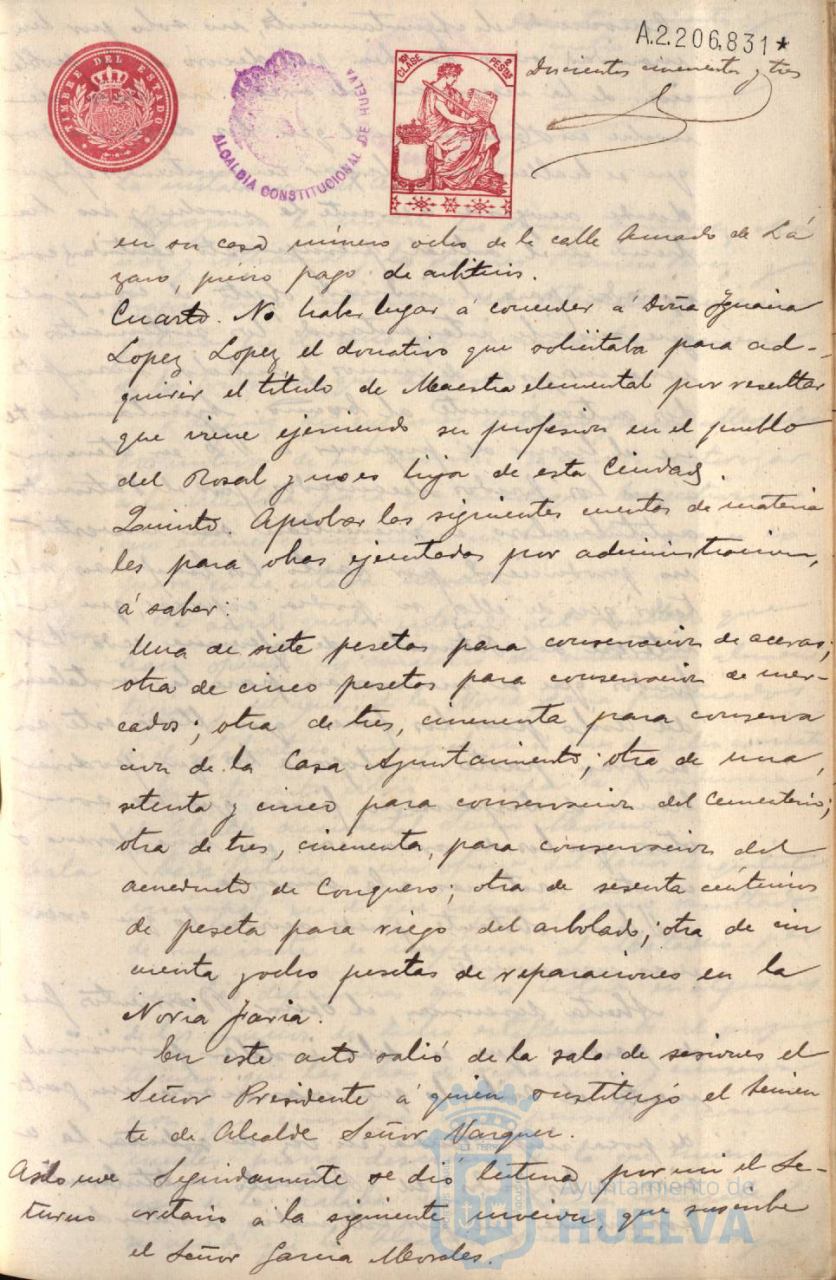 A.2.206,831*
TIMBRE DEL ESTADO
ALCALDÍA CONSTITUCIONAL DE HUELVA
10ª CLASE 2 PESETAS
Doscientos cincuenta y tres
en su casa número ocho de la calle Amado de Lá
zaro, previo pago de arbitrios.
Cuarto. No haber lugar á conceder á Doña Ignacia
Lopez Lopez el donativo que solicitaba para ad-
quirir el título de Maestra elemental por resultar
que viene ejerciendo su profesion en el pueblo
del Rosal y no es hija de esta Ciudad.
Quinto. Aprobar las siguientes cuentas de materia
les para obras ejecutadas por administracion,
á saber:
Una de siete pesetas para conservacion de aceras;
otra de cinco pesetas para conservacion de mer-
cados; otra de tres, cincuenta para conserva
cion de la Casa Ayuntamiento; otra de una,
setenta y cinco para conservacion del Cementerio;
otra de tres, cincuenta, para conservacion del
acueducto de Conquero; otra de sesenta centimos
de peseta para riego del arbolado; otra de cin
cuenta y ocho pesetas de reparaciones en la
Noria
En este acto salió de la sala de sesiones el
Señor Presidente á quien sustituyó el Tenien
te de Alcalde Señor Vazquez.
Seguidamente se dió lectura por mi el Se-
cretario á la siguiente mocion, que suscribe
el Señor Garcia Morales.
Ayuntamiento de
HUELVA